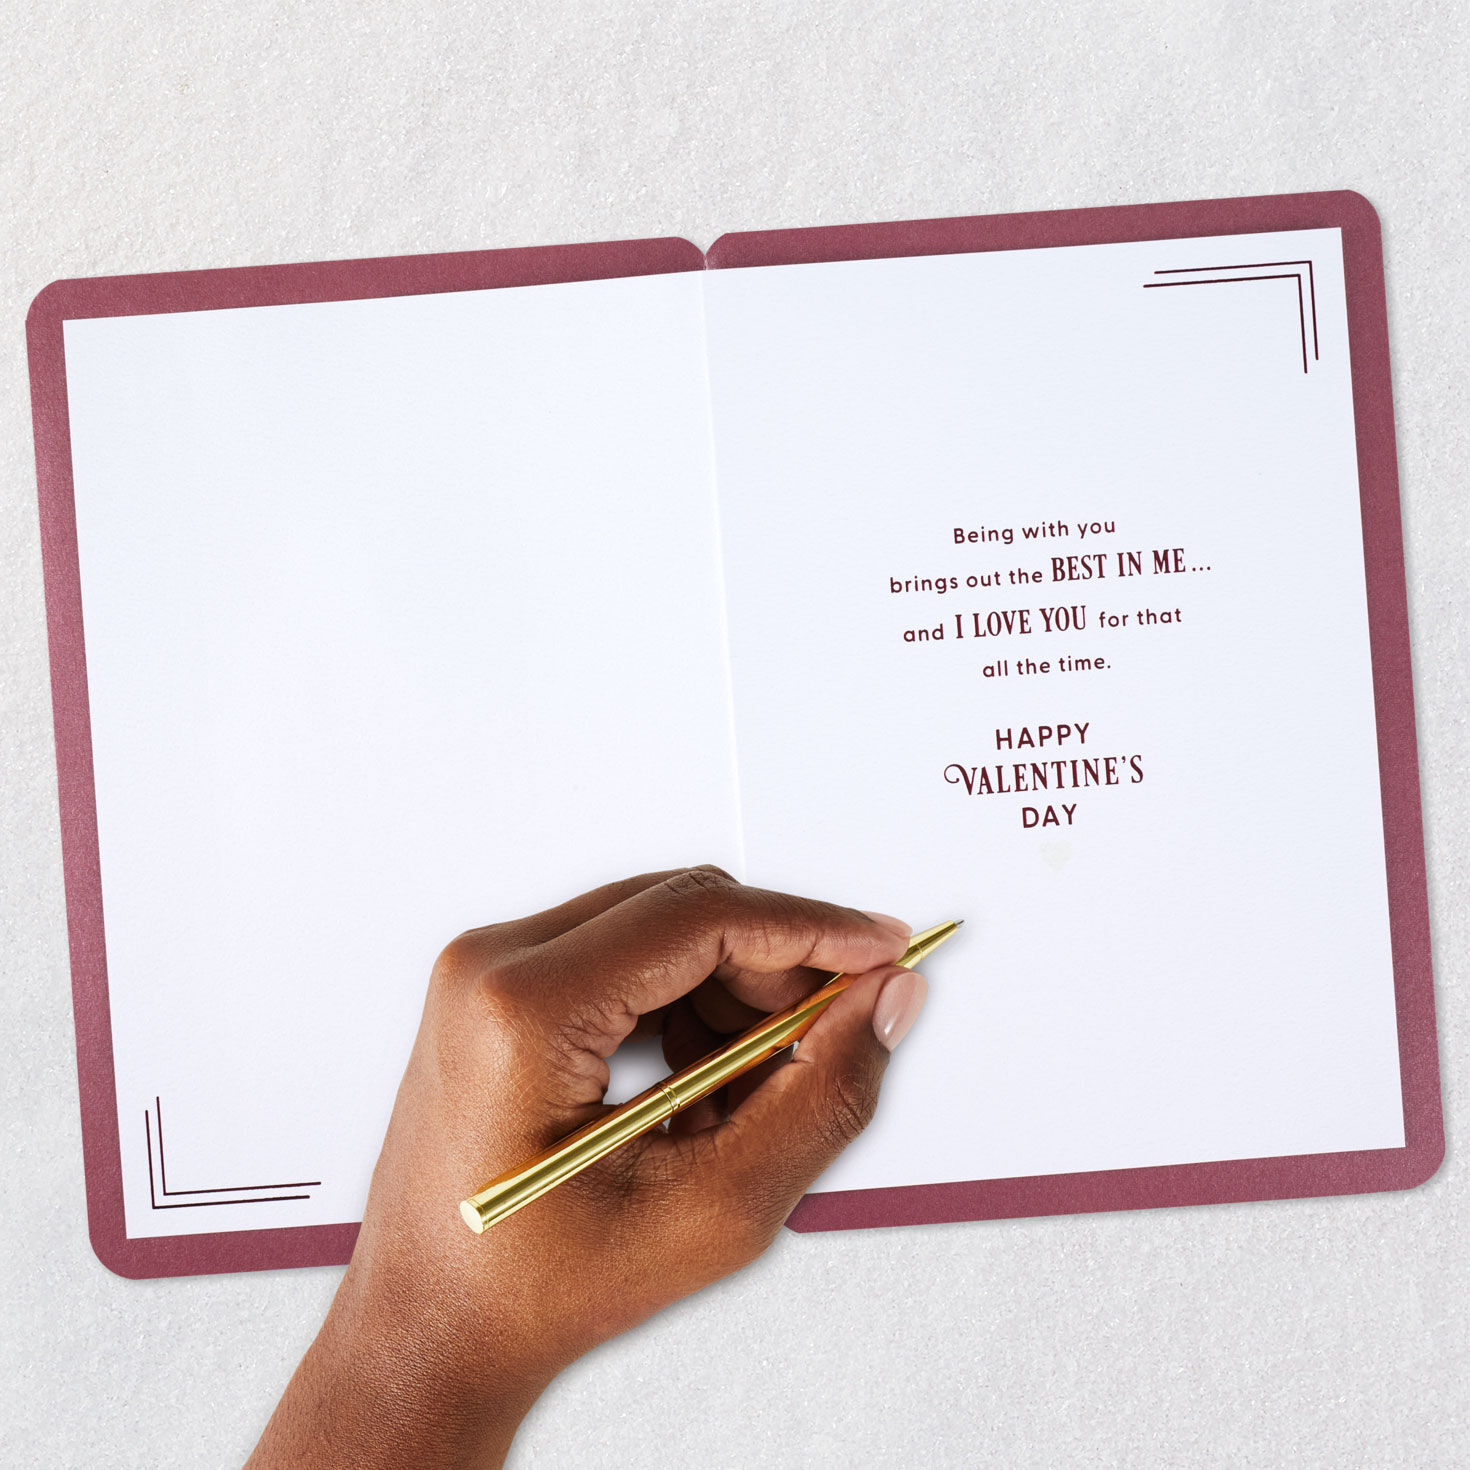 Being with you
brings out the BEST IN ME...
and I LOVE YOU for that
all the time.
HAPPY
VALENTINE'S
DAY